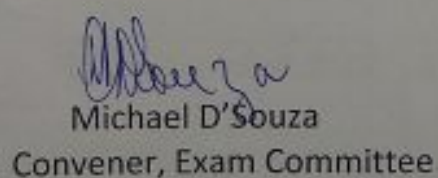 MDSouza
Michael D'Souza
Convener, Exam Committee